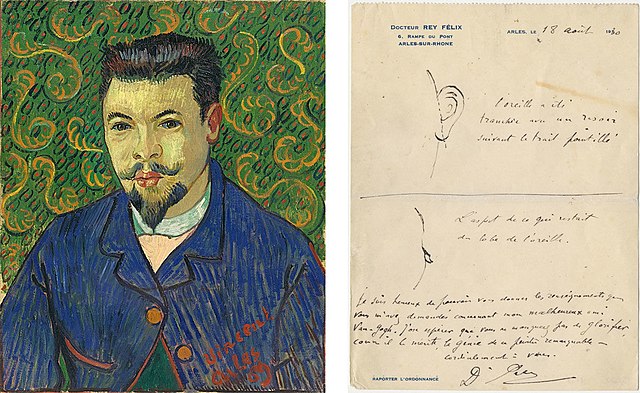 Vincent
Arles
89
DOCTEUR REY FÉLIX
6, RAMPE DU PONT
ARLES-SUR-RHONE
ARLES, LE 18 août 1930
L'oreille a été
tranchée avec un rasoir
suivant le trait pointillé
L'aspect de ce qui restait
du lobe de l'oreille.
Je suis heureux de pouvoir vous donner les renseignements que
vous m'avez demandés concernant mon malheureux ami
Van Gogh. J'ose espérer que vous ne manquerez pas de glorifier
comme il le mérite, le génie de ce peintre remarquable –
cordialement à vous.
Dr Rey
RAPORTER L'ORDONNANCE